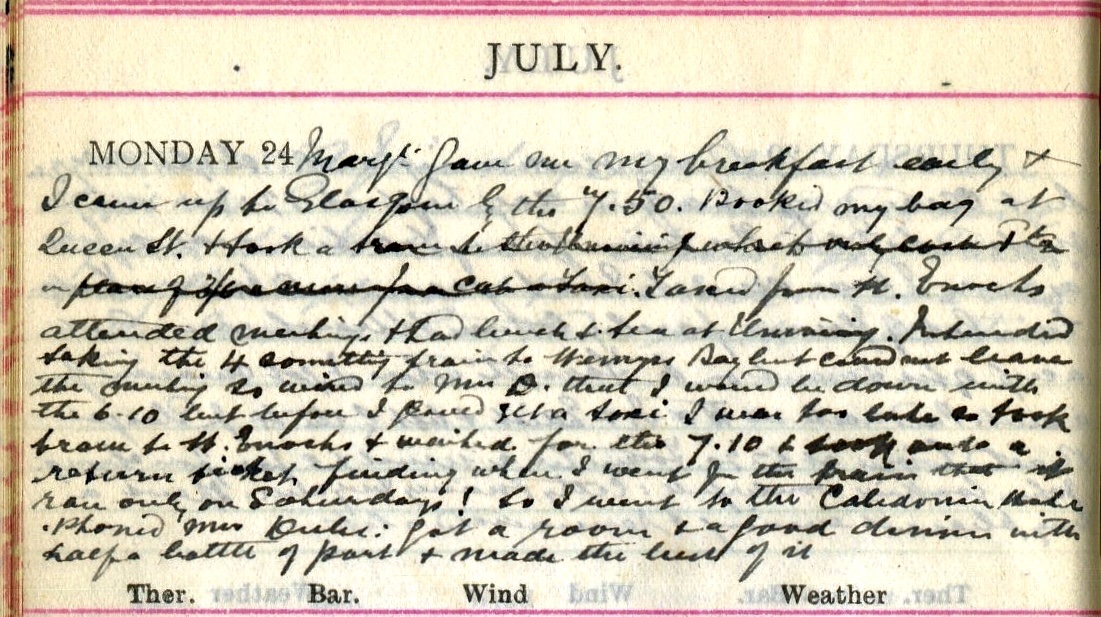 JULY.
MONDAY 24 Margt. gave me my breakfast early &
I came up to Glasgow by the 7.50. Booked my bag at
Queen St. & took a tram to the University which only cost
in place of for a Cab or Taxi. Taxied from St. Enochs
attended meetings & had lunch & tea at University. Intended
taking the 4 something train to Wemyss Bay but could not leave
the meeting so wired to Mrs D. that I would be down with
the 6.10 but before I could get a taxi I was too late so took
tram to St. Enochs & waited for the 7.10 & took out a
return ticket finding when I went for the train that it
ran only on Saturdays! So I went to the Caledonian Hotel
Phoned Mrs got a room & a good dinner with
half a bottle of port & made the best of it
Ther. Bar. Wind Weather